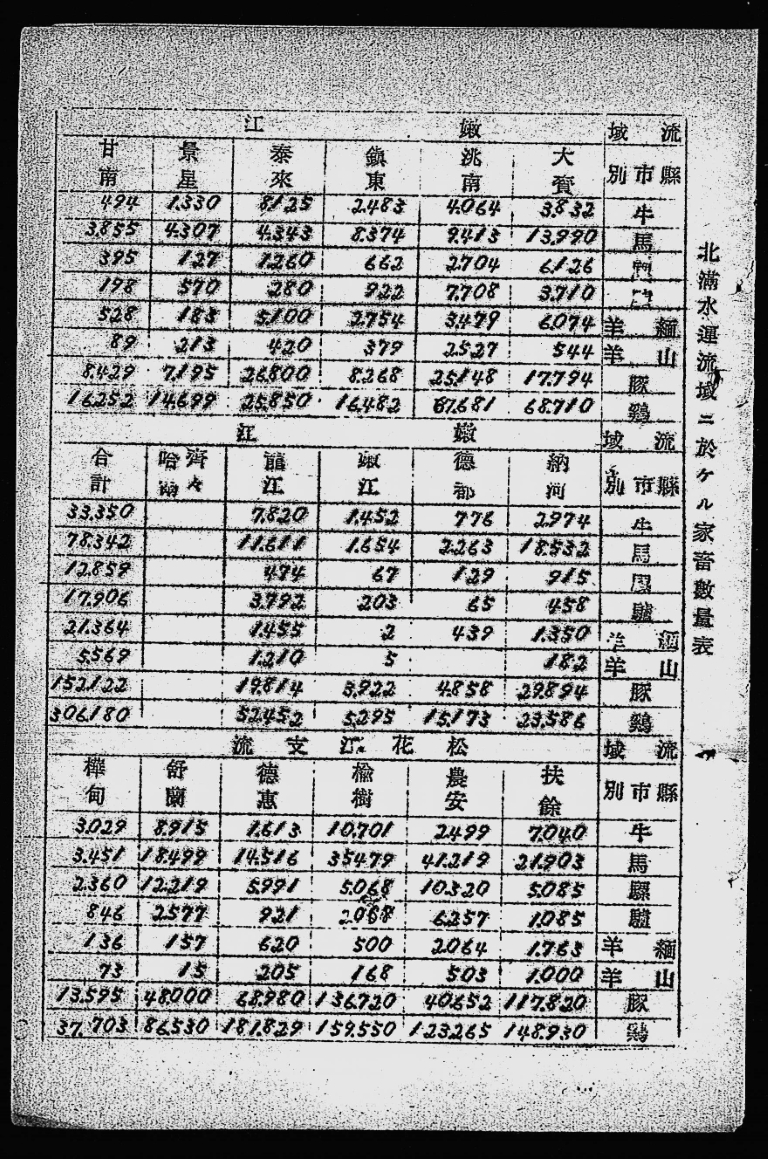 北滿水運流域ニ於ケル家畜數量表
流域 嫩江
縣市別 大賚 洮南 鎮東 泰來 景星 甘南
牛 3.832 4.064 2.483 8.125 1.330 494
馬 13.990 9.413 8.374 4.343 4.307 3.855
6.126 2.704 662 1.260 127 395
3.710 7.708 922 280 570 198
緬羊 6.074 3.479 2.754 5.100 183 528
山羊 544 2.527 379 420 213 89
豚 17.794 25.148 8.268 26.800 7.195 8.429
鷄 68.710 67.681 16.482 25.850 14.699 16.252
流域 嫩江
縣市別 納河 德都 嫩江 龍江 齊々哈爾 合計
牛 2.974 776 1.452 7.820 33.350
馬 18.532 2.263 1.654 11.611 78.342
騾 915 129 67 474 12.859
驢 458 65 203 3.792 17.906
緬羊 1.350 439 2 1.455 21.364
山羊 182 5 1.210 5.569
豚 29.894 4.858 3.922 19.814 152.122
鷄 23.586 15.173 5.295 52.452 306.180
流域 松花江支流
縣市別 扶餘 農安 楡樹 德惠 舒蘭 樺甸
牛 7.040 2.499 10.701 1.613 8.915 3.029
馬 21.903 41.219 35.479 14.516 18.499 3.451
騾 5.085 10.320 5.068 5.991 12.219 2.360
驢 1.085 6.257 2.068 921 2.577 846
緬羊 1.763 2.064 500 620 157 136
山羊 1.000 503 168 205 15 73
豚 117.820 40.652 136.720 68.980 48.000 13.595
鷄 148.930 123.265 159.550 181.829 86.530 37.703